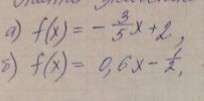 а) f(x) = - 3/5 x + 2,
б) f(x) = 0,6x - 1/2,